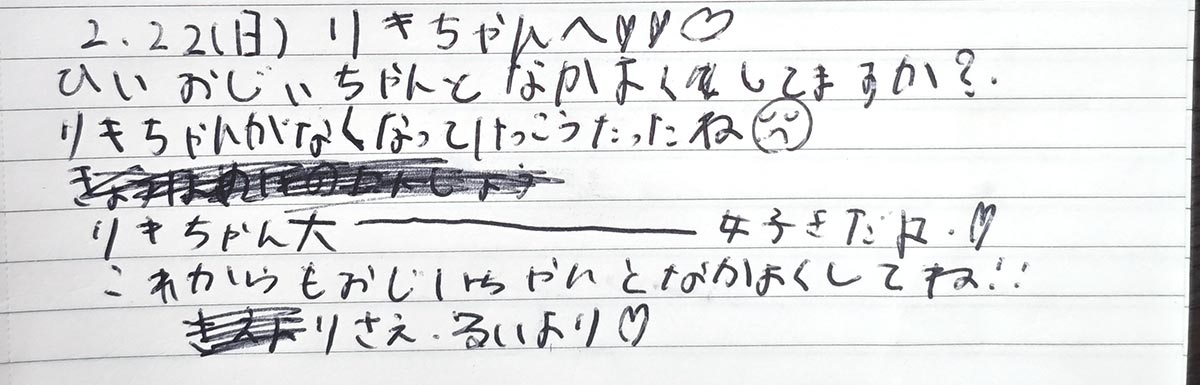 2.22(日) りきちゃんへ♡♡♡
ひいおじぃちゃんとなかよくしてますか?.
りきちゃんがなくなってけっこうたったね
りきちゃん大――――好きだよ.♡
これからもおじいちゃんとなかよくしてね!!
りさえ.るいより♡